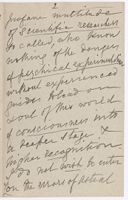 2
profane multitude
of scientific researchers
so called, who know
nothing of the danger
of psychical experiments
without experienced
guides
soul of this world
of consciousness into
a deeper stage &
higher recognition
I do not wish to enter
on the mass of detail